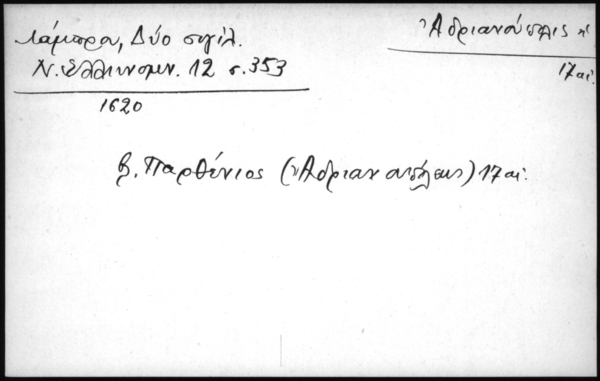 Λάμπρου, Δύο σιγίλ.
Ν. Ἑλληνομν. 12 σ. 353
1620
Ἀδριανούπολις
17 αἰ.
β. Παρθένιος (Ἀδριανουπόλεως) 17 αἰ.